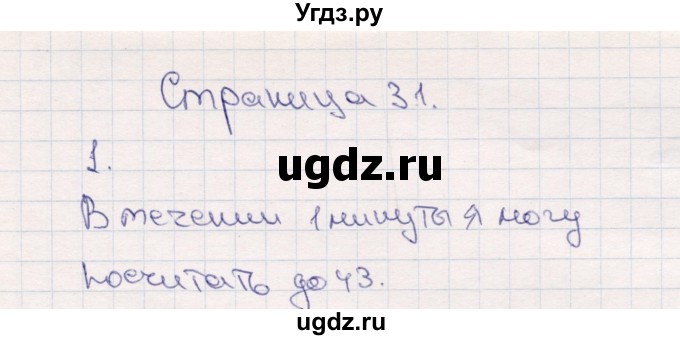 Угдз.ру
Страница 31.
1.
ugdz.ru
В течении 1 минуты я могу
посчитать до 43.
ugdz.ru